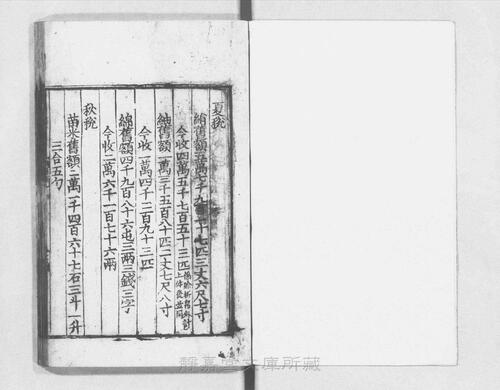 夏稅
紬舊額萬七千九百二十七匹三丈六尺七寸
今收四萬五千七百五十三匹
紬舊額一萬三千五百八十匹二丈七尺八寸
今收一萬四千三百九十三匹
綿舊額四千九百八十六屯三兩三錢三字
今收二萬六千一百七十六兩
秋稅
苗米舊額二萬一千四百六十七石三斗一升
三合五勺
靜嘉堂文庫所藏